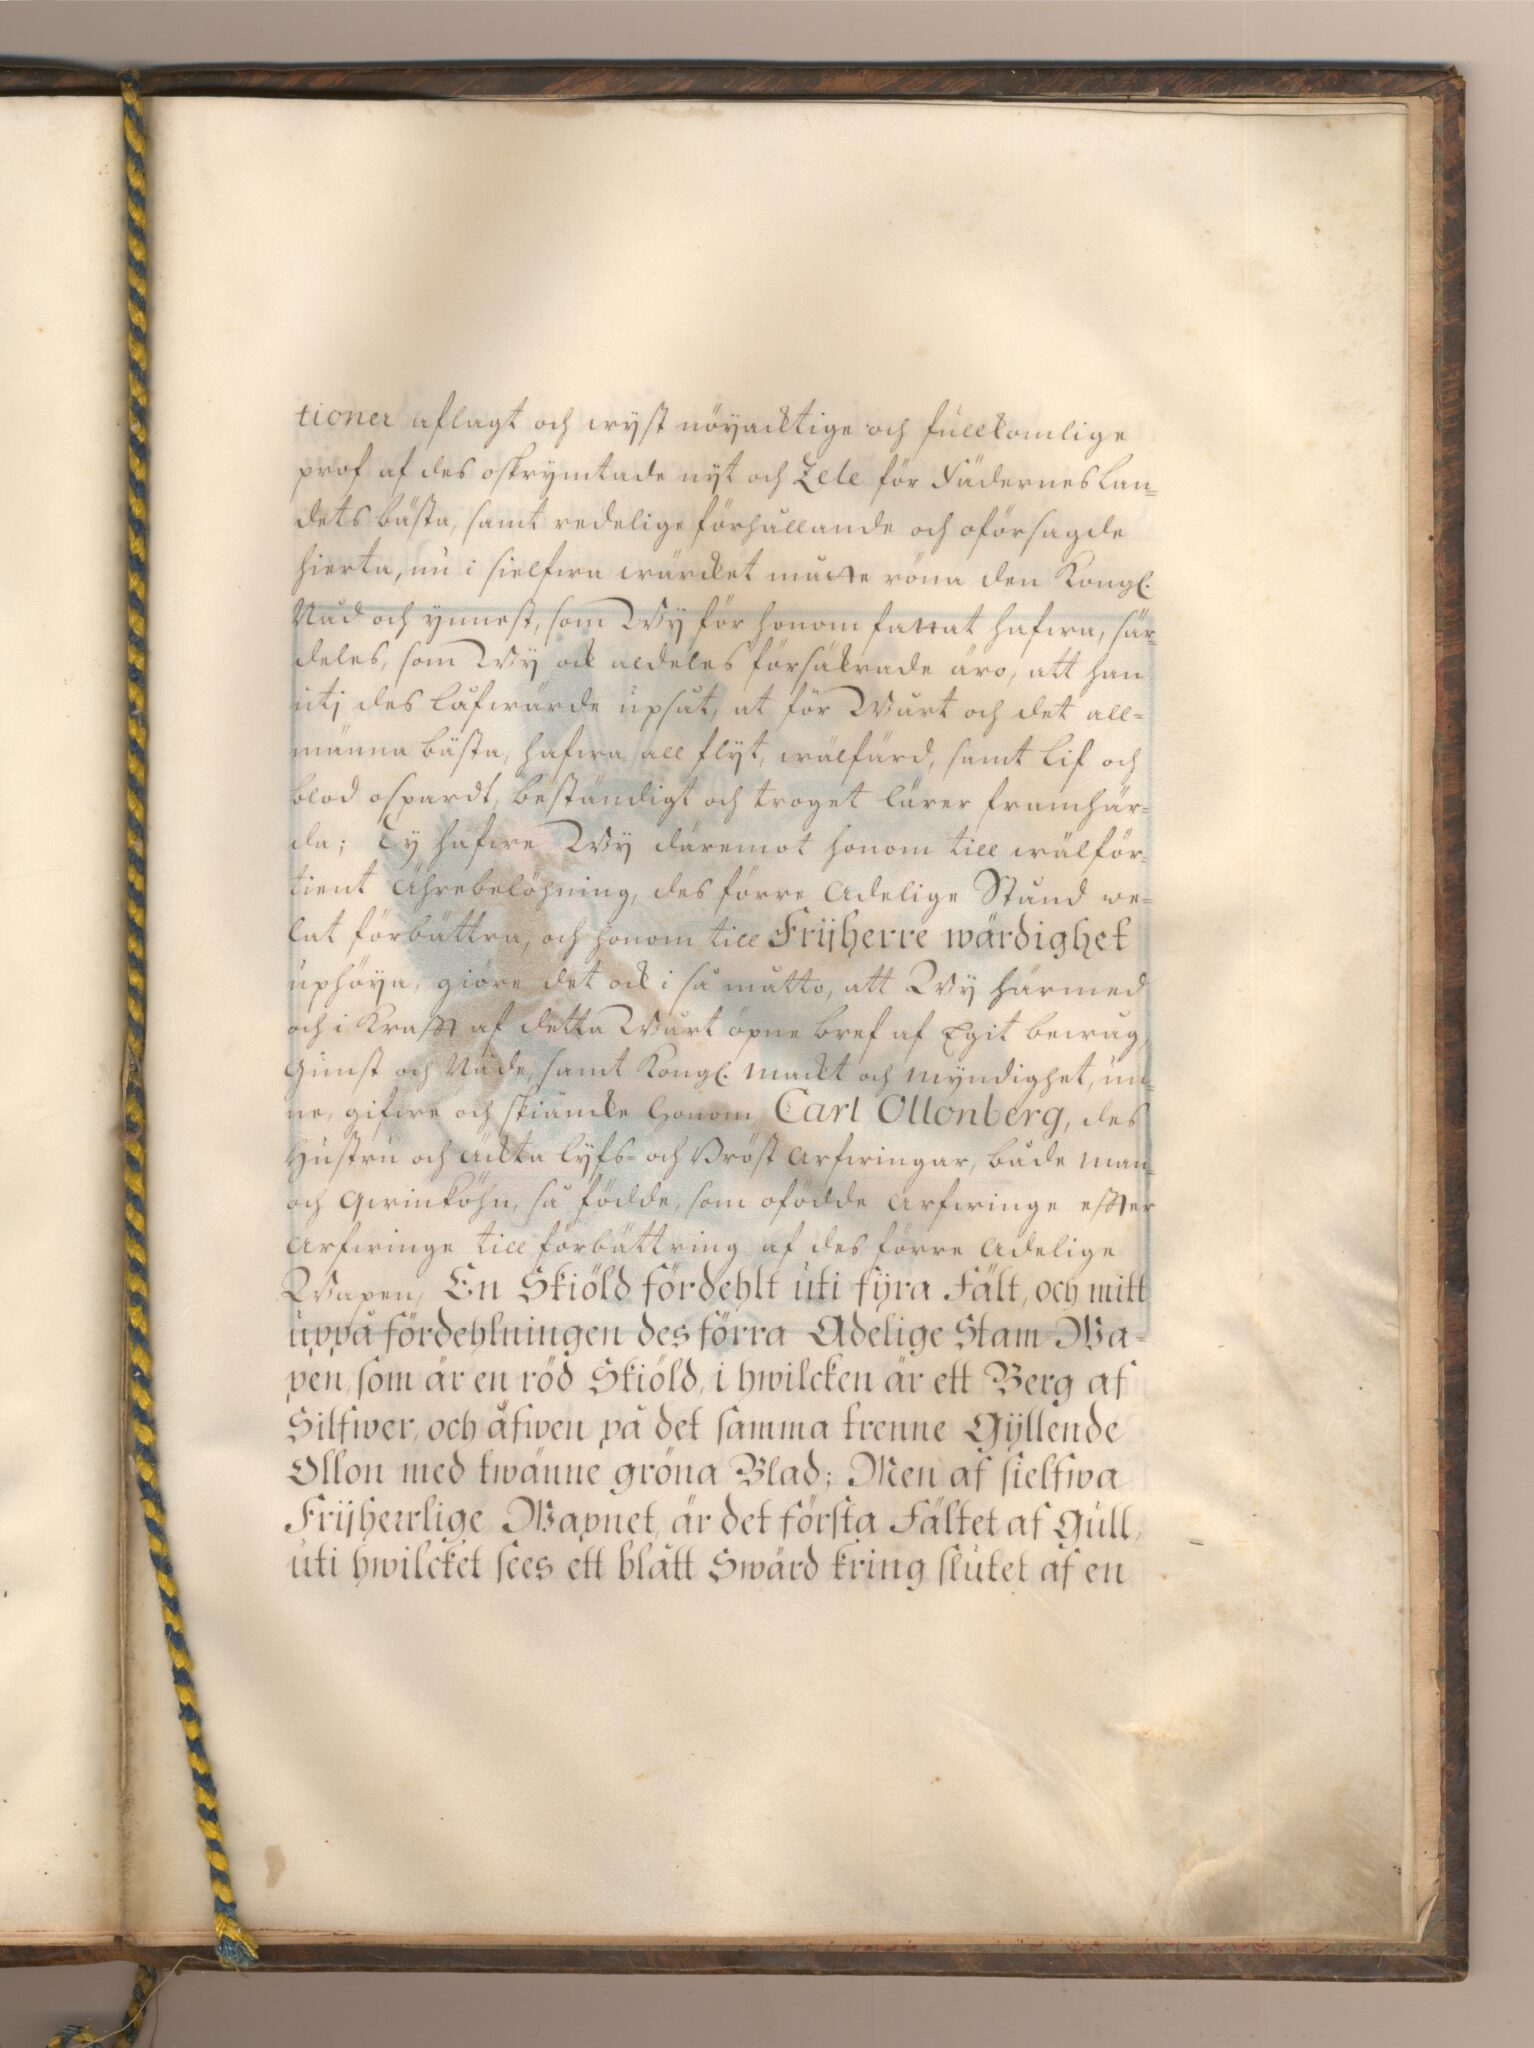 tioner aflagt och wyst nöyacktige och fullkomlige
prof af des oskrymtade nyt och Zele för Fädernes Lan=
dets bästa, samt redelige förhållande och oförsagde
hierta, nu i sielfwa wärcket måtte röna den Kongl.
Nåd och ynnest, som Wy för honom fattat hafwa, sär=
deles, som Wy ock aldeles försäkrade äro, att han
utj des låfwärde upsåt, at för Wårt och det all=
männa bästa, hafwa all flyt, wälfärd, samt Lif och
blod ospardt, beständigt och troget lärer framhär=
da; Ty hafwe Wy däremot honom till wälför=
tient Ährebelöhning, des förre Adelige Stånd we=
lat förbättra, och honom till Frijherre wärdighet
uphöya, giöre det ock i så måtto, att Wy härmed
och i Krafft af detta Wårt öpne bref af Egit bewåg,
Gunst och Nåde, samt Kongl. Mackt och Myndighet, un=
ne, gifwe och skiäncke honom Carl Ollonberg, des
Hustru och Äckta Lyfs= och Bröst Arfwingar, både Man=
och Qwinköhn, så födde, som ofödde Arfwinge effter
Arfwinge till förbättring af des förre Adelige
Wapen, En Skiöld fördehlt uti fyra Fält, och mitt
uppå fördehlningen des förra Adelige Stam=Wa=
pen, som är en röd Skiöld, i hwilcken är ett Berg af
Silfwer, och åfwen på det samma trenne Gyllende
Ollon med twänne gröna Blad; Men af sielfwa
Frijherrlige Wapnet, är det första Fältet af Gull,
uti hwilcket sees ett blått Swärd kring slutet af en